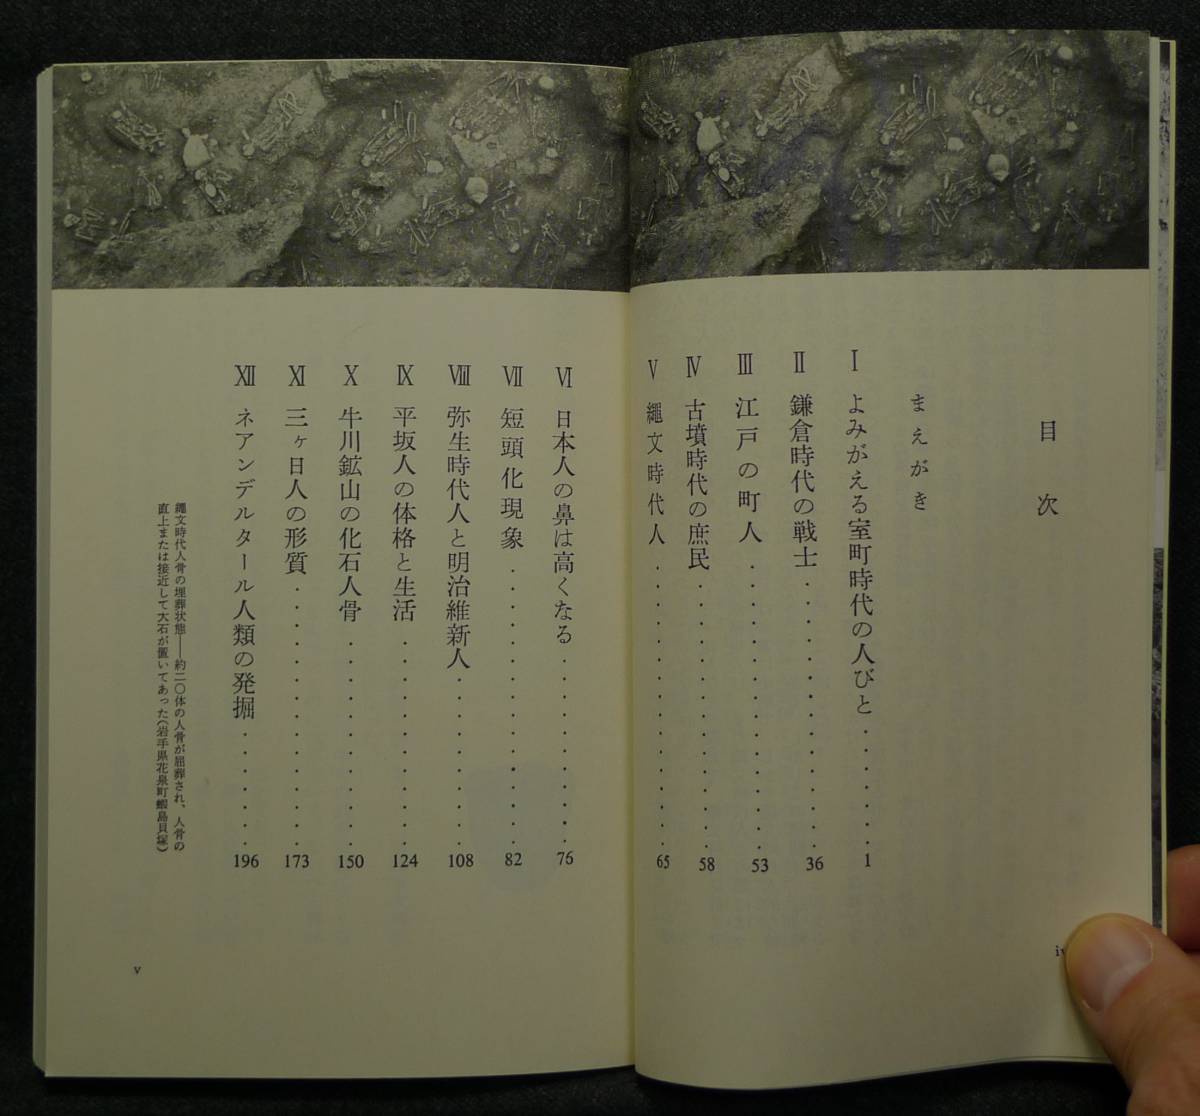 目次
まえがき
Ⅰ よみがえる室町時代の人びと・・・・・・1
Ⅱ 鎌倉時代の戦士・・・・・・・・・・・36
Ⅲ 江戸の町人・・・・・・・・・・・・53
Ⅳ 古墳時代の庶民・・・・・・・・・・・58
Ⅴ 縄文時代人・・・・・・・・・・・・65
iv
Ⅵ 日本人の鼻は高くなる・・・・・・・・76
Ⅶ 短頭化現象・・・・・・・・・・・・82
Ⅷ 弥生時代人と明治維新人・・・・・・・108
Ⅸ 平坂人の体格と生活・・・・・・・・・124
Ⅹ 牛川鉱山の化石人骨・・・・・・・・・150
Ⅺ 三ヶ日人の形質・・・・・・・・・・・173
Ⅻ ネアンデルタール人類の発掘・・・・・196
縄文時代人骨の埋葬状態――約二〇体の人骨が屈葬され、人骨の
直上または接近して大石が置いてあった(岩手県花泉町蝦島貝塚)
v